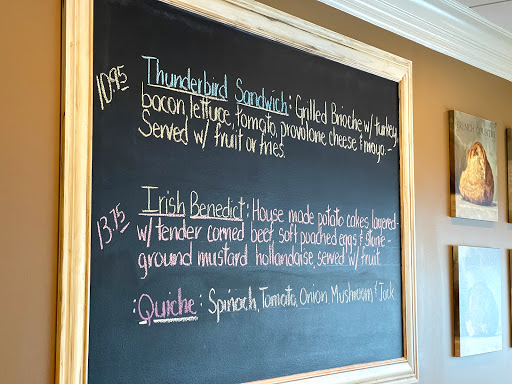 10.95
Thunderbird Sandwich: Grilled Brioche w/ turkey,
bacon, lettuce, tomato, provolone, cheese & mayo. -
Served w/ fruit or fries.
13.75
Irish Benedict: House made potato cakes, layered-
w/ tender corned beef, soft poached eggs & stone -
ground mustard hollandaise, served w/ fruit
:Quiche: Spinach, Tomato, Onion, Mushroom & Jack
COUNTRY